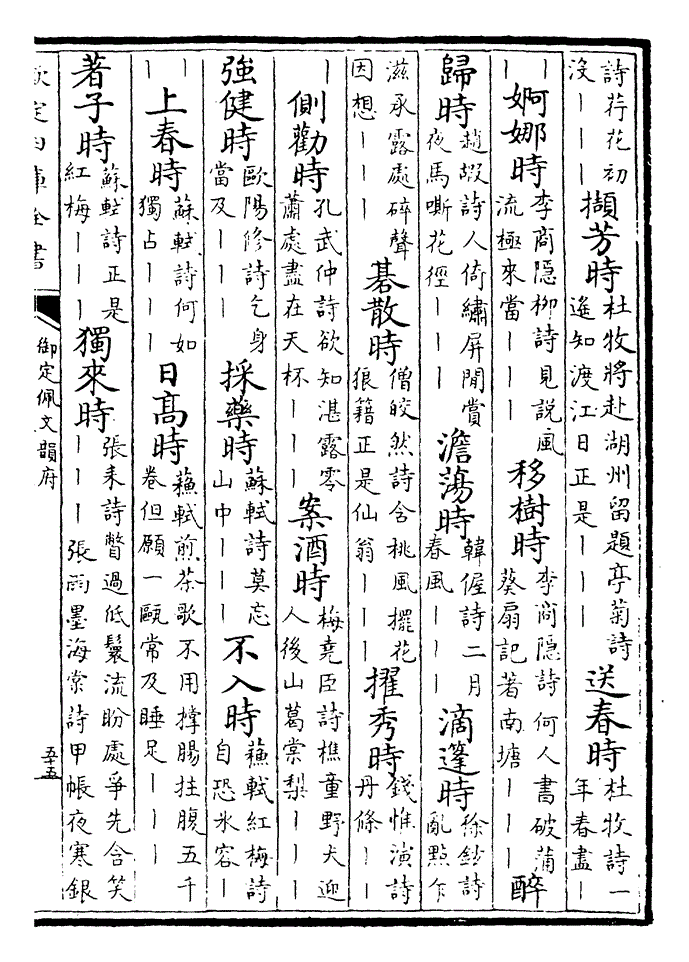 詩荇花初沒———擷芳時杜牧將赴湖州留題亭菊詩遙知渡江日正是———送春時杜牧詩一年春盡—
——婀娜時李商隱柳詩見說風流極來當———移樹時李商隱詩何人書破蒲葵扇記著南塘———醉
歸時趙嘏詩人倚繡屏閒賞夜馬嘶花徑———澹蕩時韓偓詩二月春風———滴篷時徐鉉詩亂點乍
滋承露處碎聲因想———棊散時僧皎然詩含桃風擺花狼籍正是仙翁———擢秀時錢惟演詩丹條——
—側勸時孔武仲詩欲知湛露零蕭處盡在天杯———案酒時梅堯臣詩樵童野犬迎人後山葛棠梨———
強健時歐陽修詩乞身當及———採藥時蘇軾詩莫忘山中———不入時蘇軾紅梅詩自恐氷容—
——上春時蘇軾詩何如獨占———日髙時蘇軾煎茶歌不用撐腸拄腹五千卷但願一甌常及睡足———
著子時蘇軾詩正是紅梅———獨來時張耒詩瞥過低鬟流盼處爭先含笑———張雨墨海棠詩甲帳夜寒銀
欽定四庫全書
御定佩文韻府
五十五